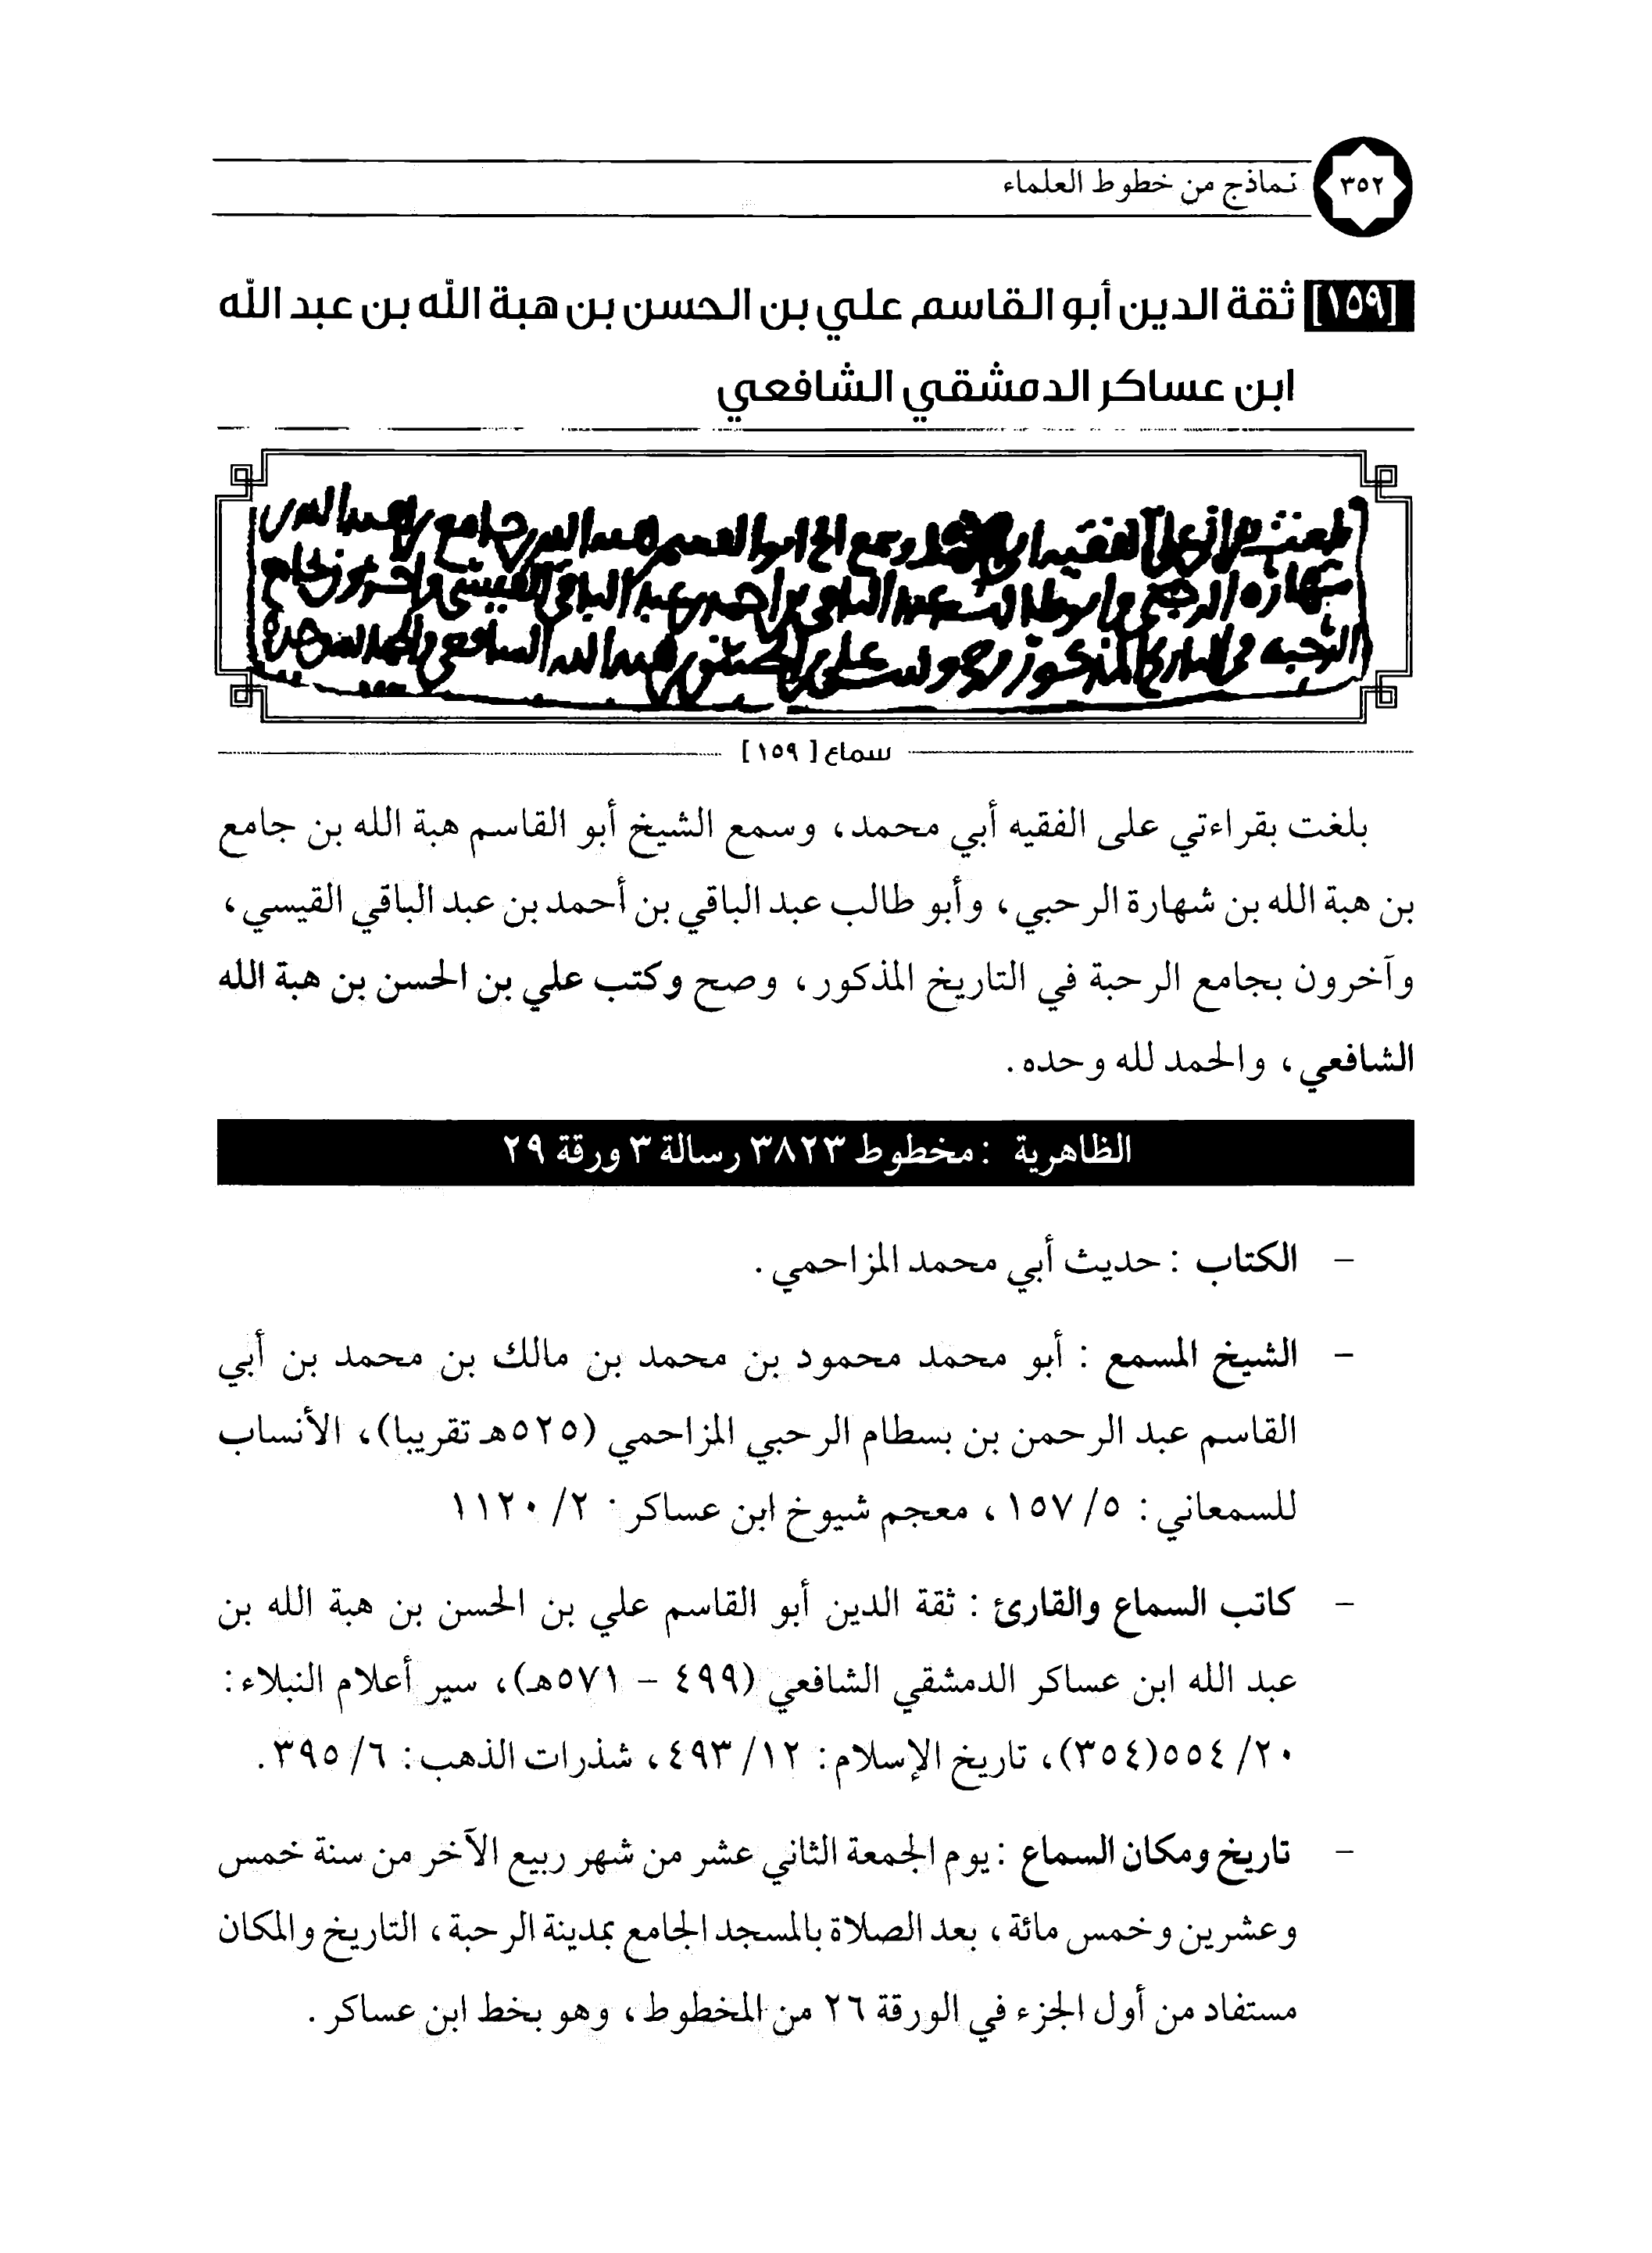 ٣٥٢
نماذج من خطوط العلماء
[١٥٩] ثقة الدين أبو القاسم علي بن الحسن بن هبة الله بن عبد الله
ابن عساكر الدمشقي الشافعي
سماع [ ١٥٩ ]
بلغت بقراءتي على الفقيه أبي محمد، وسمع الشيخ أبو القاسم هبة الله بن جامع
بن هبة الله بن شهارة الرحبي، وأبو طالب عبد الباقي بن أحمد بن عبد الباقي القيسي،
وآخرون بجامع الرحبة في التاريخ المذكور، وصح وكتب علي بن الحسن بن هبة الله
الشافعي، والحمد لله وحده.
الظاهرية : مخطوط ٣٨٢٣ رسالة ٣ ورقة ٢٩
– الكتاب : حديث أبي محمد المزاحمي.
– الشيخ المسمع : أبو محمد محمود بن محمد بن مالك بن محمد بن أبي
القاسم عبد الرحمن بن بسطام الرحبي المزاحمي (٥٢٥هـ تقريبا)، الأنساب
للسمعاني: ٥/ ١٥٧، معجم شيوخ ابن عساكر: ٢/ ١١٢٠
– كاتب السماع والقارئ : ثقة الدين أبو القاسم علي بن الحسن بن هبة الله بن
عبد الله ابن عساكر الدمشقي الشافعي (٤٩٩ – ٥٧١هـ)، سير أعلام النبلاء:
٢٠/ ٥٥٤(٣٥٤)، تاريخ الإسلام: ١٢/ ٤٩٣، شذرات الذهب: ٦/ ٣٩٥.
– تاريخ ومكان السماع : يوم الجمعة الثاني عشر من شهر ربيع الآخر من سنة خمس
وعشرين وخمس مائة، بعد الصلاة بالمسجد الجامع بمدينة الرحبة، التاريخ والمكان
مستفاد من أول الجزء في الورقة ٢٦ من المخطوط، وهو بخط ابن عساكر.